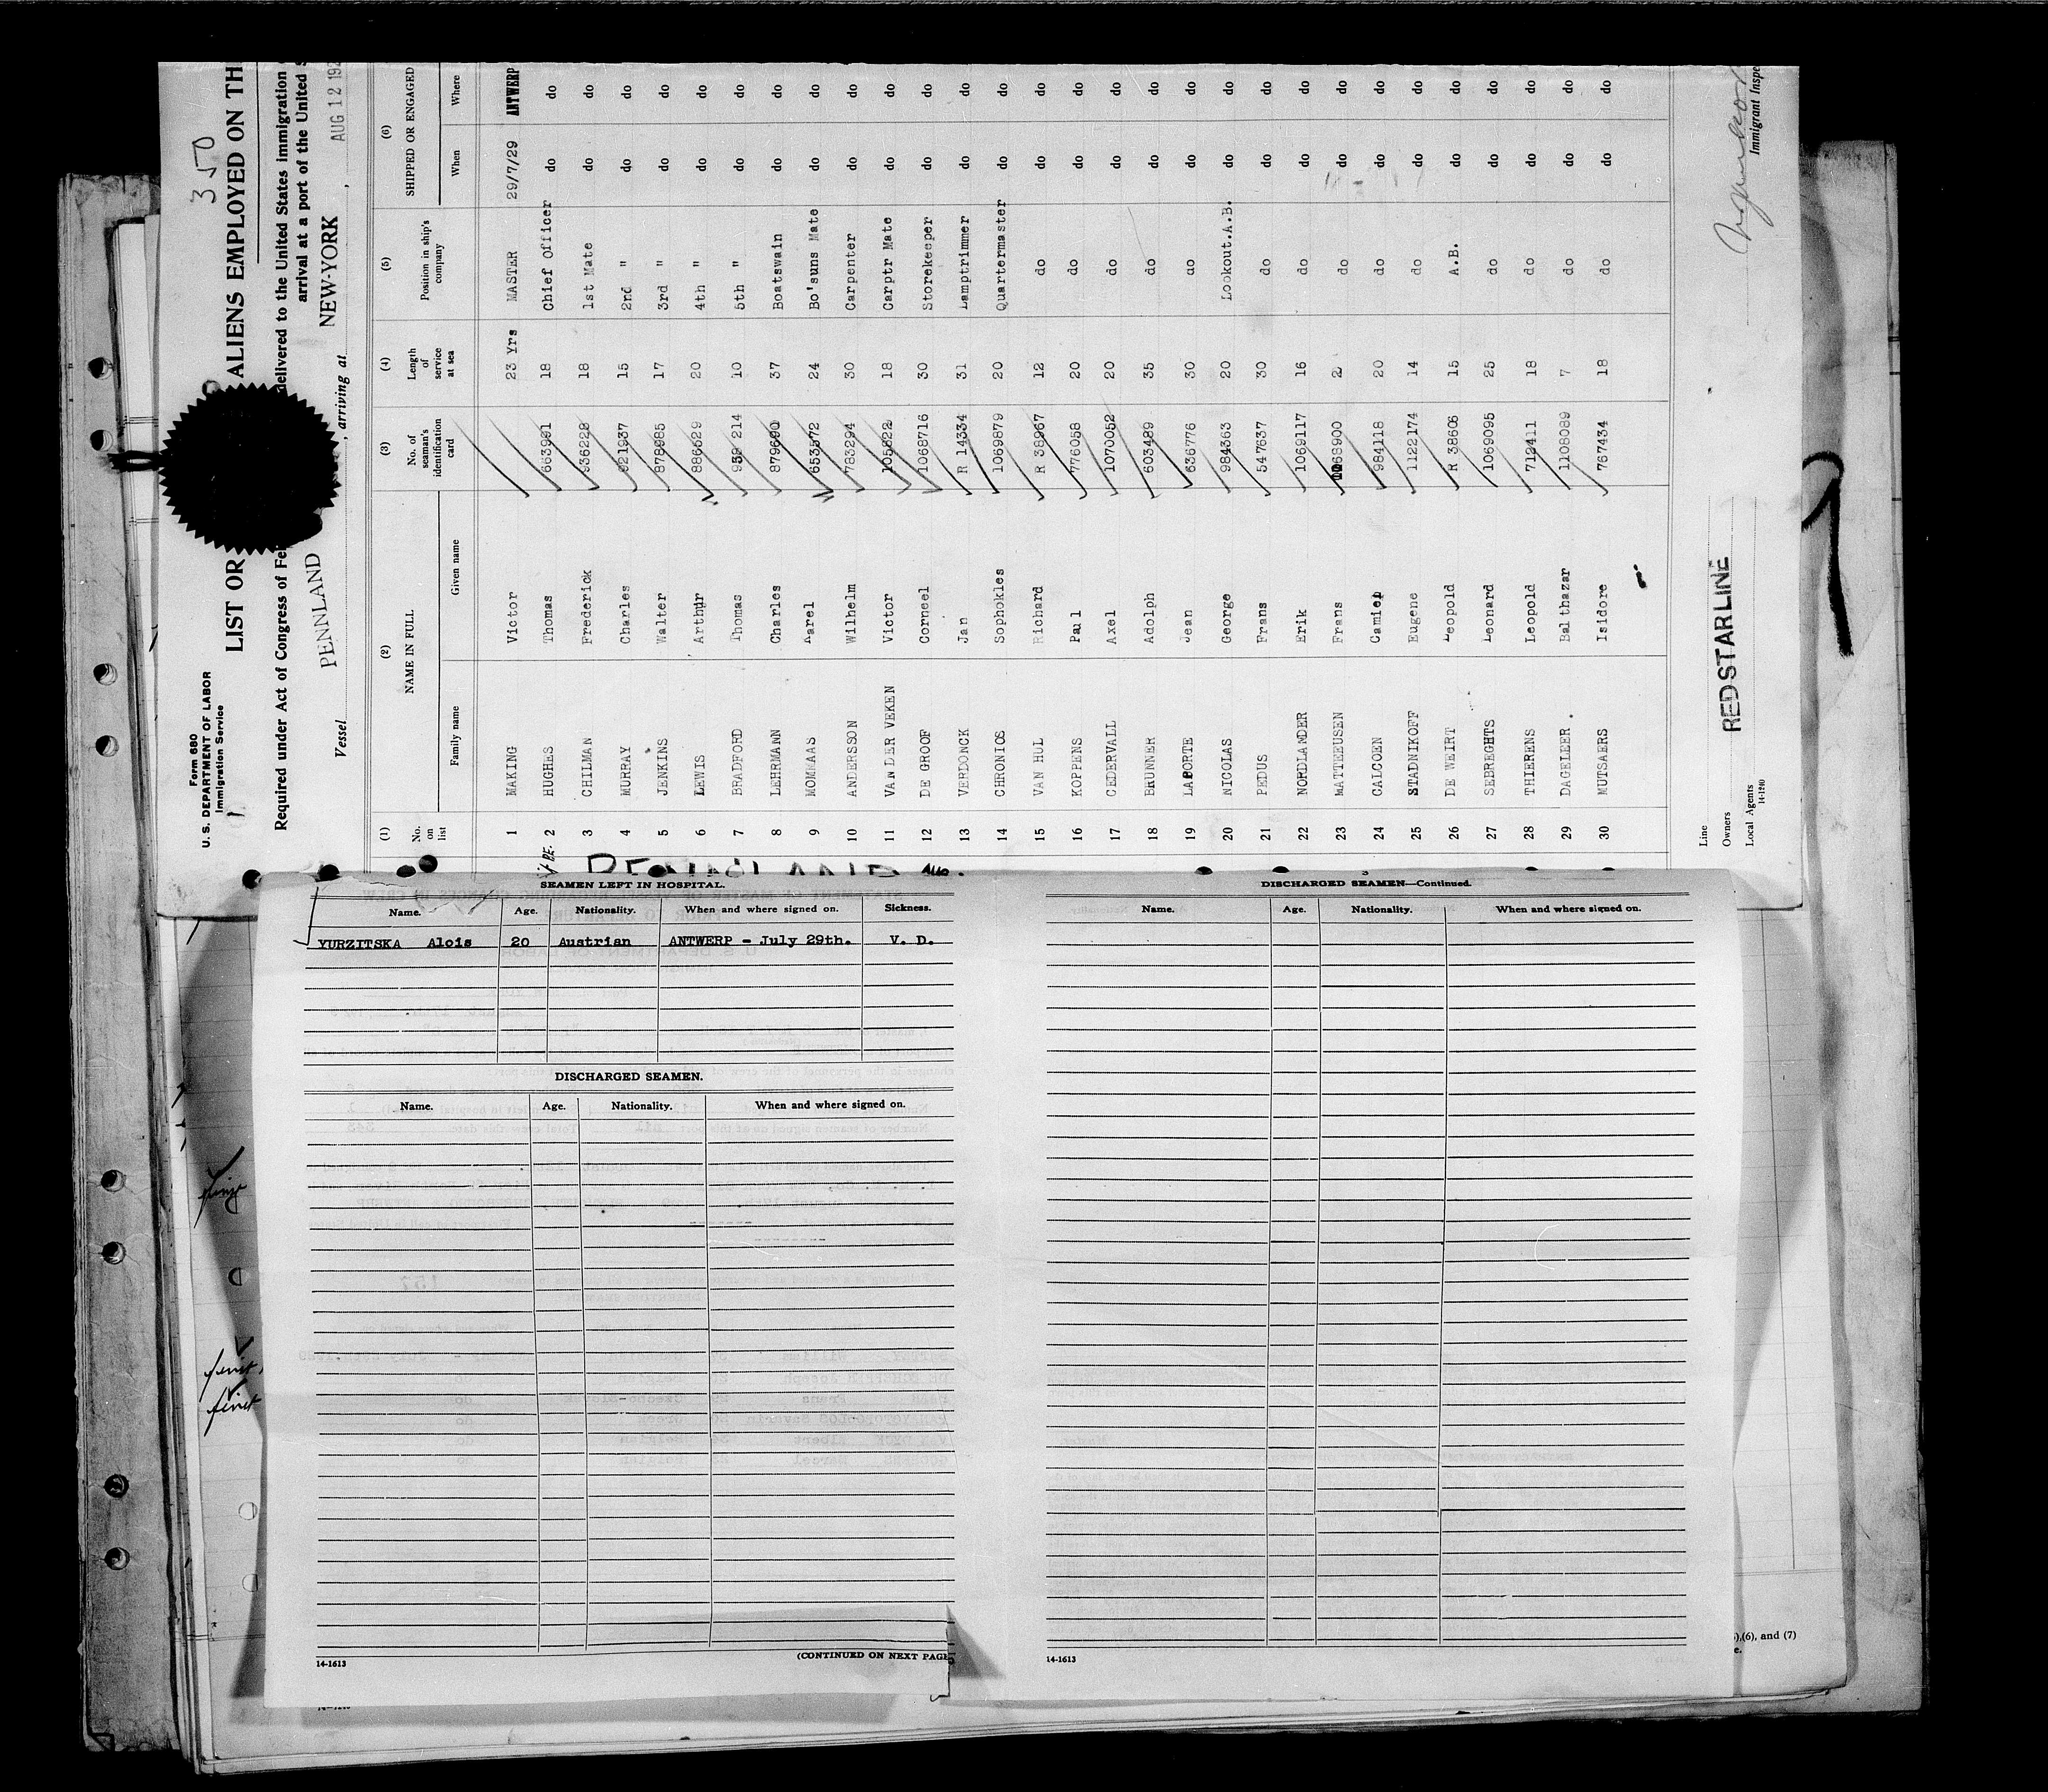 350
Form 680
U. S. DEPARTMENT OF LABOR
Immigration Service
LIST OR ALIENS EMPLOYED ON TH
Required under Act of Congress of Fe delivered to the United States immigration
arrival at a port of the United S
Vessel PENNLAND , arriving at NEW-YORK , AUG 12 192
(1) (2) (3) (4) (5) (6)
No. on list NAME IN FULL No. of seaman's identification card Length of service at sea Position in ship's company SHIPPED OR ENGAGED
Family name Given name When Where
1 MAKING Victor 23 Yrs MASTER 29/7/29 ANTWERP
2 HUGHES Thomas 663991 18 Chief Officer do do
3 CHILMAN Frederick 936228 18 1st Mate do do
4 MURRAY Charles 921937 15 2nd " do do
5 JENKINS Walter 878985 17 3rd " do do
6 LEWIS Arthur 886629 20 4th " do do
7 BRADFORD Thomas 959 214 10 5th " do do
8 LEHRMANN Charles 879690 37 Boatswain do do
9 MOMMAS Karel 653572 24 Bo'suns Mate do do
10 ANDERSSON Wilhelm 783294 30 Carpenter do do
11 VAN DER VEKEN Victor 105822 18 Carptr Mate do do
12 DE GROOF Corneel 1068716 30 Storekeeper do do
13 VERDONCK Jan R 14334 31 Lamptrimmer do do
14 CHRONIOS Sophokles 1069879 20 Quartermaster do do
15 VAN HUL Richard R 38967 12 do do do
16 KOPPENS Paul 776058 20 do do do
17 CEDERVALL Axel 1070052 20 do do do
18 BRUNNER Adolph 603489 35 do do do
19 LAPORTE Jean 636776 30 do do do
20 NICOLAS George 984363 20 Lookout.A.B. do do
21 PEDUS Frans 547637 30 do do do
22 NORDLANDER Erik 1069117 16 do do do
23 MATTEEUSEN Frans 1068900 2 do do do
24 CALCOEN Camiel 984118 20 do do do
25 STADNIKOFF Eugene 1122174 14 do do do
26 DE WEIRT Leopold R 38606 15 A.B. do do
27 SEBREGHTS Leonard 1069095 25 do do do
28 THIERENS Leopold 712411 18 do do do
29 DAGELEER . Balthazar 1108089 7 do do do
30 MUTSAERS Isidore 767434 18 do do do
Line RED STAR LINE
Owners
Local Agents
14-1240
Immigrant Inspe
SEAMEN LEFT IN HOSPITAL.
Name. Age. Nationality. When and where signed on. Sickness.
YURZITSKA Alois 20 Austrian ANTWERP - July 29th. V. D.
DISCHARGED SEAMEN.
Name. Age. Nationality. When and where signed on.
(CONTINUED ON NEXT PAGE
14-1613
3
DISCHARGED SEAMEN—Continued.
Name. Age. Nationality. When and where signed on.
14-1613
),(6), and (7)